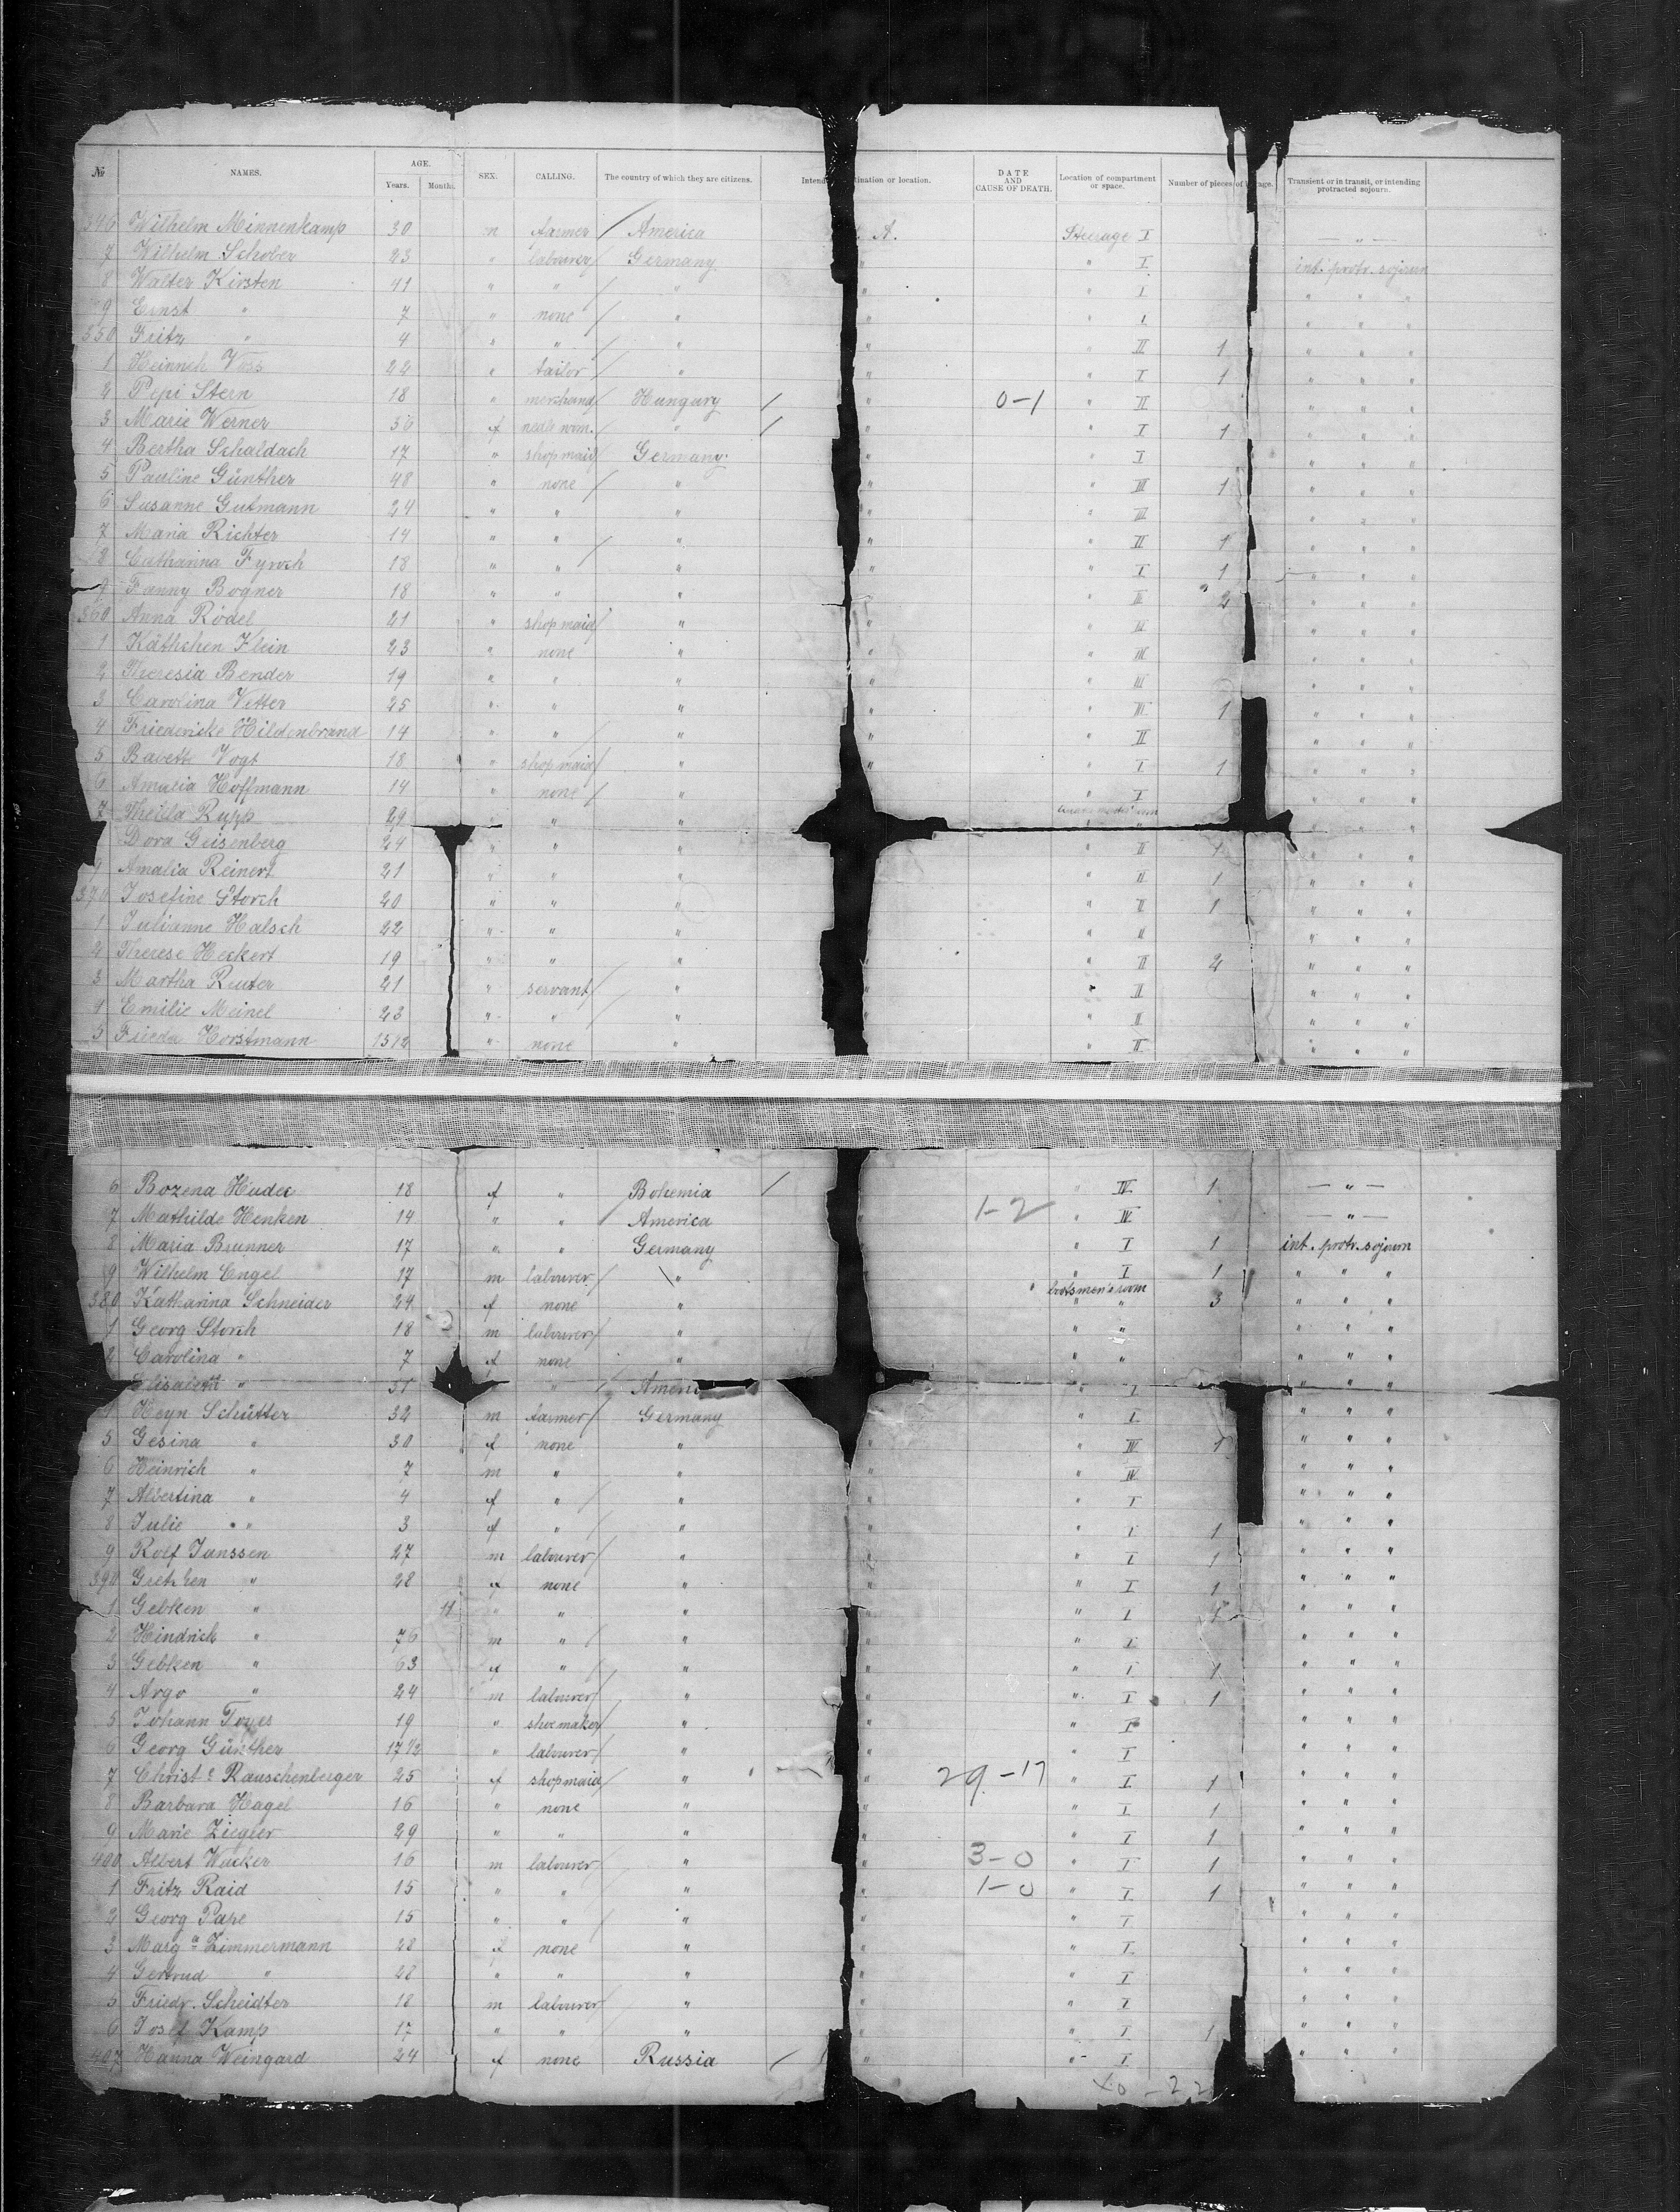 № NAMES. AGE. Years. Months. SEX. CALLING. The country of which they are citizens. Intend tination or location. DATE AND CAUSE OF DEATH. Location of compartment or space. Number of pieces of age. Transient or in transit, or intending protracted sojourn.
346 Wilhelm Minnenkamp 30 m farmer / America A. Steerage I — " —
7 Wilhelm Schober 23 " labourer / Germany " " I int. protr. sojourn
8 Walter Kirsten 41 " " / " " " I " " "
9 Ernst " 7 " none / " " " I " " "
350 Fritz " 4 " " / " " " II 1 " " "
1 Heinrich Voss 22 " tailor / " " " I 1 " " "
2 Pepi Stern 18 " merchand / Hungury / " 0-1 " II " " "
3 Marie Werner 36 f nedle wom. / " / " " I 1 " " "
4 Bertha Schaldach 17 " shop maid / Germany " " I " " "
5 Pauline Günther 48 " none / " " " III 1 " " "
6 Susanne Gutmann 24 " " " " " III " " "
7 Maria Richter 14 " " / " " " II 1 " " "
8 Catharina Fyrsch 18 " " / " " " I 1 " " "
9 Fanny Bogner 18 " " " " " II 2 " " "
360 Anna Rödel 21 " shop maid / " " " II " " "
1 Käthchen Klein 23 " none " " " III " " "
2 Theresia Bender 19 " " " " " III " " "
3 Carolina Vetter 25 " " " " " III 1 " " "
4 Friedericke Hildenbrand 14 " " / " " " II " " "
5 Babette Vogt 18 " shop maid / " " " I 1 " " "
6 Amalia Hoffmann 14 " none / " " I " " "
7 Thekla Rupp 29 " " " " " " "
Dora Geisenberg 24 " " " " II 1 " " "
9 Amalia Reinert 21 " " " " II 1 " " "
370 Josefine Storch 20 " " " " II 1 " " "
1 Julianne Halsch 22 " " " " II " " "
2 Therese Heckert 19 " " " " II 2 " " "
3 Martha Reuter 21 " servant / " " " II " " "
4 Emilie Meinel 23 " " / " " " II " " "
5 Frieda Horstmann 13 1/2 " none " " II " " "
6 Bozena Hudec 18 f " Bohemia / " IV 1 — " —
7 Mathilde Henken 14 " " / America " 1-2 " IV — " —
8 Maria Brunner 17 " " Germany " " I 1 int. protr. sojourn
9 Wilhelm Engel 17 m labourer / " " I 1 " " "
380 Katharina Schneider 24 f none " bootsmen's room " " 3 " " "
1 Georg Storch 18 m labourer / " " " " " "
2 Carolina " 7 f none " " " " " "
Elisabeth " 31 " / Ameri " I " " "
4 Heyn Schütter 32 m farmer / Germany " I " " "
5 Gesina " 30 f none " " " IV 1 " " "
6 Heinrich " 7 m " " " " IV " " "
7 Albertina " 4 f " / " " " I " " "
8 Julie " 3 f " / " " " I 1 " " "
9 Rolf Janssen 27 m labourer / " " " I 1 " " "
390 Gretchen " 28 f none " " " I 1 " " "
1 Gebken " 11 " " " " " I 1 " " "
2 Hindrich " 76 m " / " " " I " " "
3 Gebken " 63 f " / " " " I 1 " " "
4 Argo " 24 m labourer / " " " I 1 " " "
5 Johann Toyes 19 " shoemaker / " " " I " " "
6 Georg Günther 17 1/2 " labourer / " " " I " " "
7 Christ e Rauschenberger 25 f shop maid / " " 29-17 " I 1 " " "
8 Barbara Hagel 16 " none " " " I 1 " " "
9 Marie Ziegler 29 " " " " " I 1 " " "
400 Albert Wacker 16 m labourer / " " 3-0 " I 1 " " "
1 Fritz Raid 15 " " " " 1-0 " I 1 " " "
2 Georg Pape 15 " " / " " I " " "
3 Marg a Zimmermann 28 f none " " I " " "
4 Gertrud " 28 " " " " I " " "
5 Friedr. Scheidter 18 m labourer / " " I " " "
6 Josef Kamp 17 " " " " I 1 " " "
407 Hanna Weingard 24 f none Russia / " " I " " "